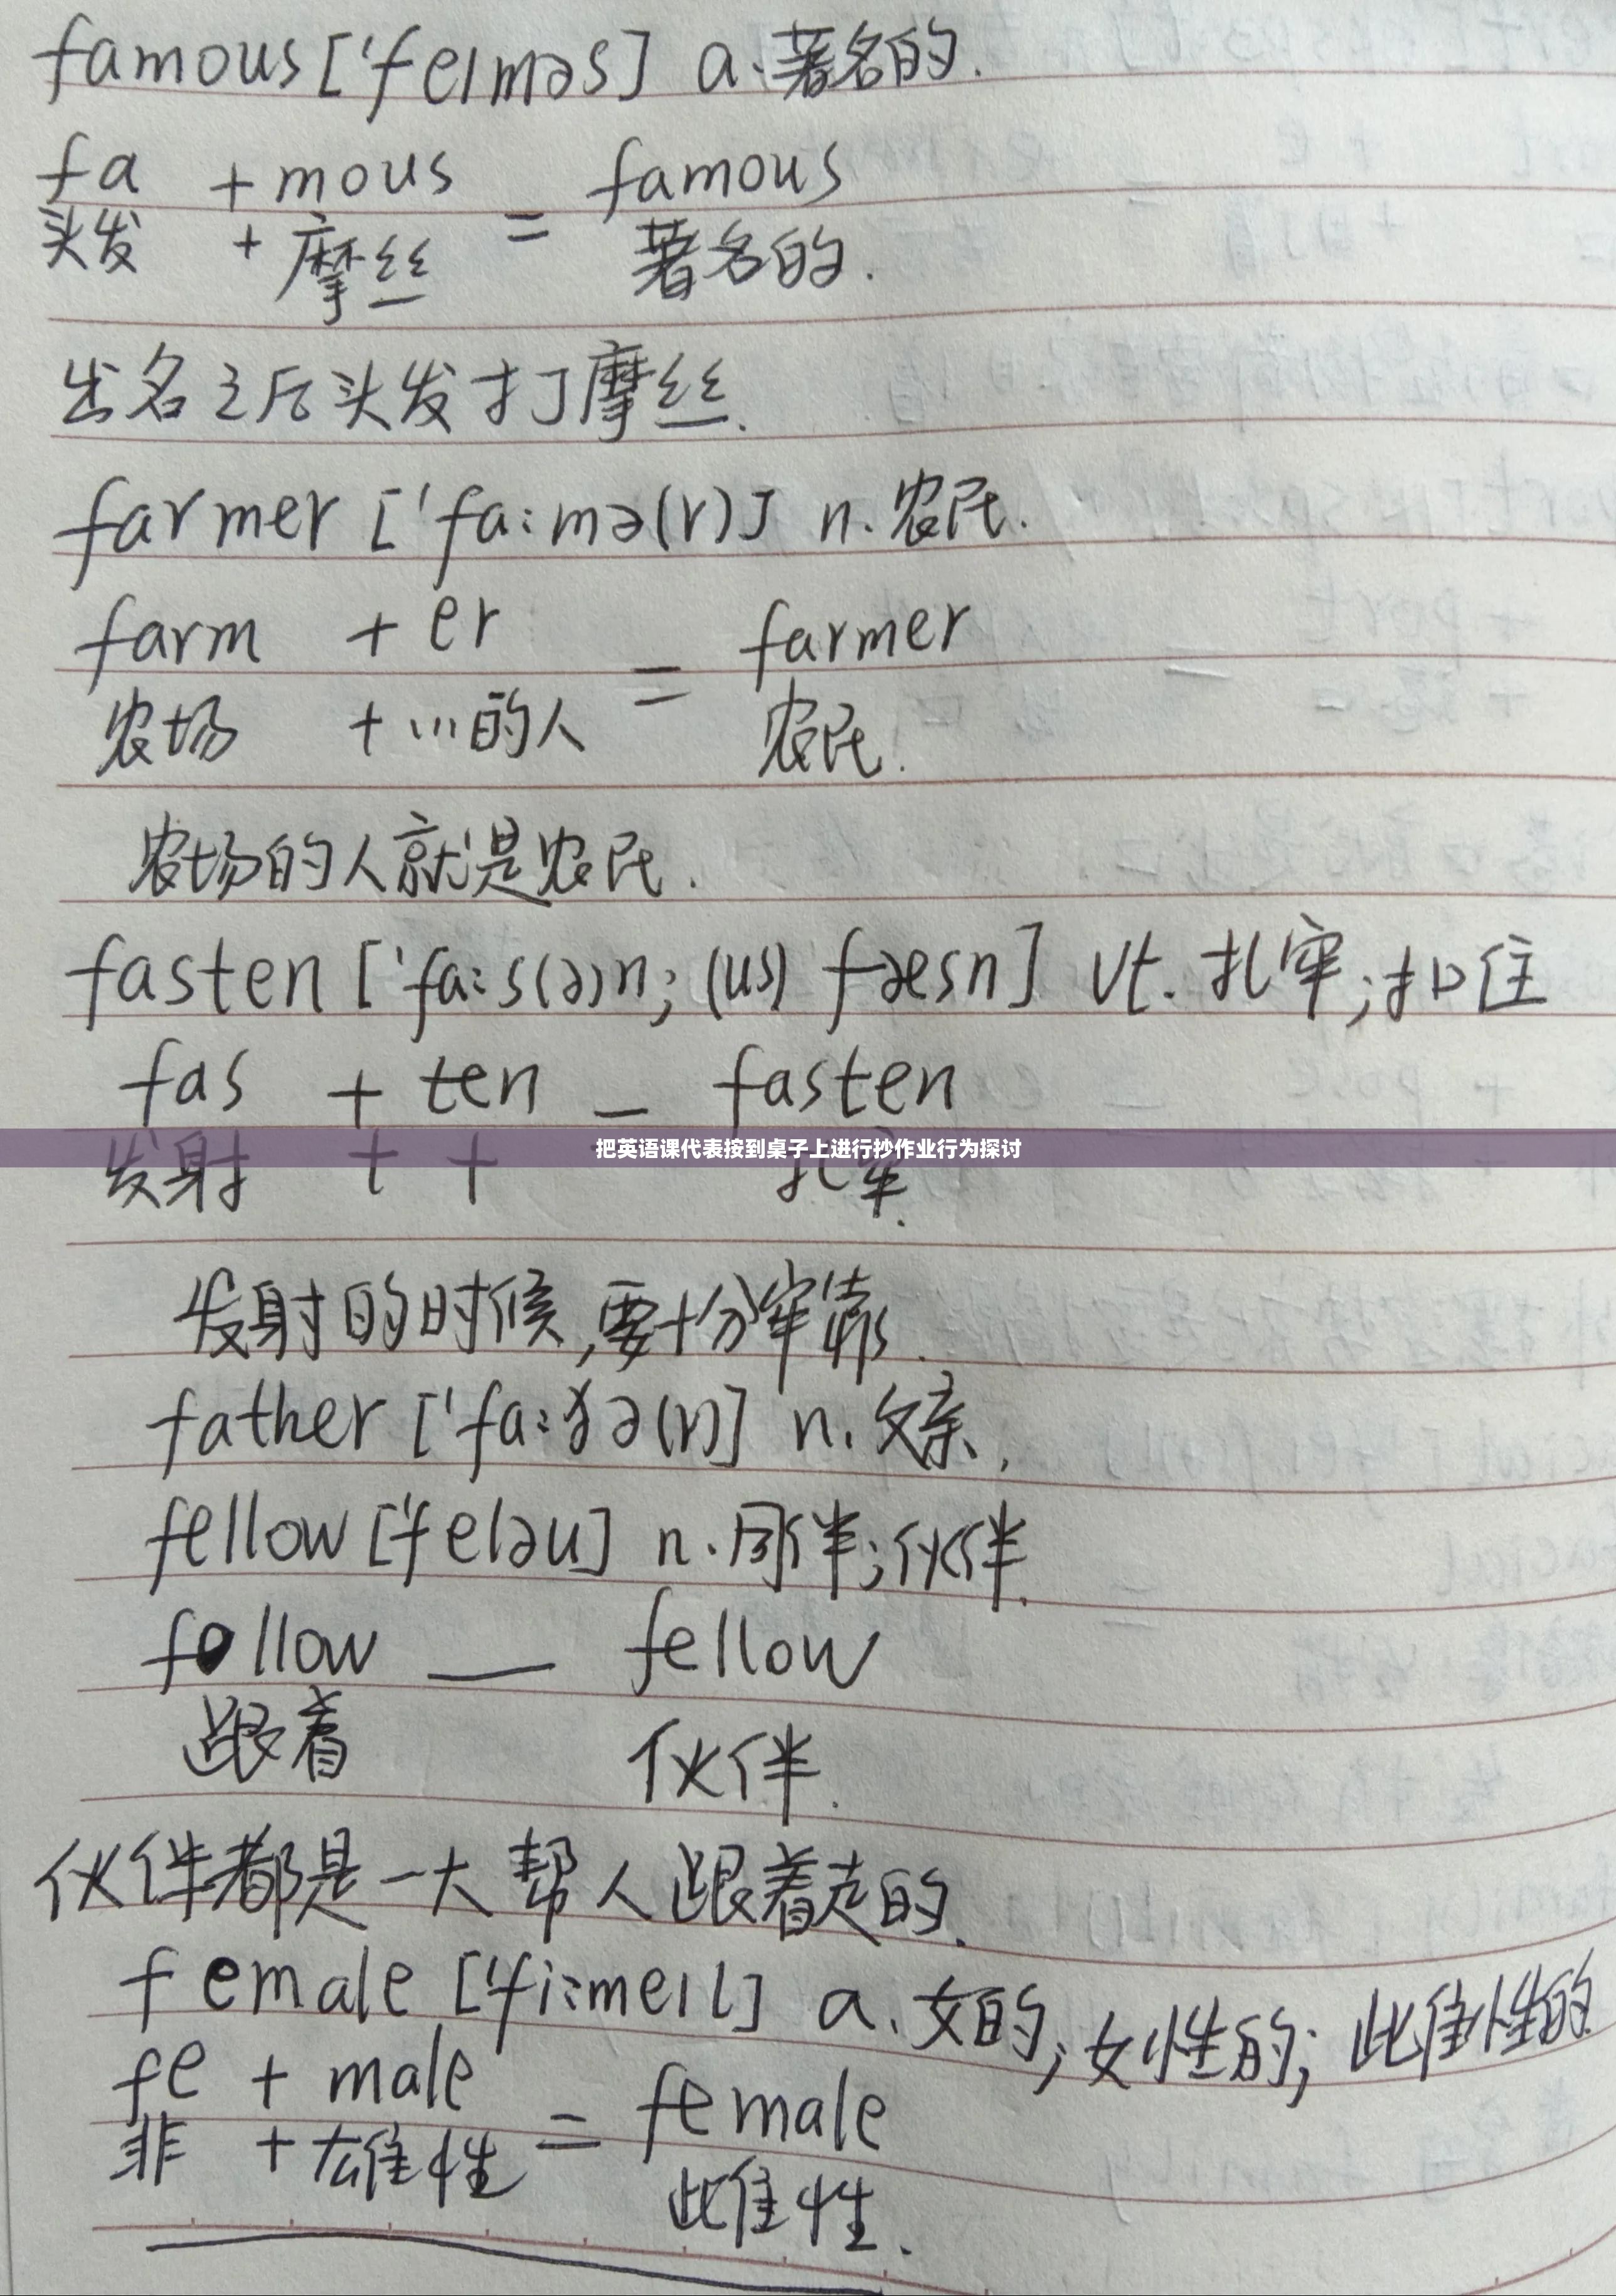 famous ['feɪməs] a. 著名的.
fa + mous = famous
头发 + 摩丝 著名的.
出名之后头发打摩丝.
farmer ['fa:mə(r)] n. 农民.
farm + er = farmer
农场 + ...的人 农民.
农场的人就是农民.
fasten ['fa:s(ə)n; (us) fæsn] vt. 扎牢;扣住
fas + ten — fasten
把英语课代表按到桌子上进行抄作业行为探讨
发射 + 十 扎牢.
发射的时候,要十分牢靠.
father ['fa:ðə(r)] n. 父亲.
fellow ['feləu] n. 同伴;伙伴.
follow — fellow
跟着 伙伴.
伙伴都是一大帮人跟着走的.
female ['fi:meɪl] a. 女的;女性的;雌性的
fe + male = female
非 + 雄性 雌性.